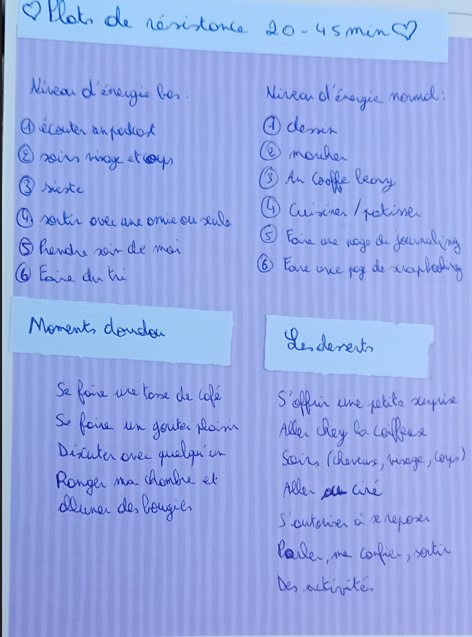 ♡ Plats de résistance 20-45min ♡
Niveau d'énergie bas:
① écouter un podcast
② soins visage et corps
③ sieste
④ sortir avec une amie ou seule
⑤ Prendre soin de moi
⑥ Faire du tri
Niveau d'énergie normal:
① dessin
② marcher
③ An
④ Cuisiner / patisser
⑤ Faire une page de journaling
⑥ Faire une page de scrapbooking
Moments doudou
Se faire une tasse de café
Se faire un gouter
Discuter avec quelqu'un
Ranger ma chambre et
allumer des bougies
Les desserts
S'offrir une petite surprise
Aller chez la coiffeuse
Soins (cheveux, visage, corps)
Aller au ciné
S'autoriser à se reposer
Parler, me confier, sortir
Des activités